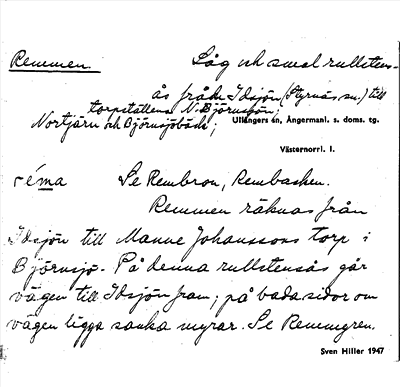 Remmen.
Låg och smal rullstens-
ås från Idsjön (Styrnäs sn.) till
torpställena N. Björnsjön,
Nortjärn och Björnsjöbäck;
Ullångers sn, Ångermanl. s. doms. tg.
Västernorrl. l.
réma
Se Rembron, Rembacken.
Remmen räknas från
Idsjön till Manne Johanssons torp i
Björnsjö. På denna rullstensås går
vägen till Idsjön fram; på båda sidor om
vägen ligga sanka myrar. Se Remmyren.
Sven Hiller 1947